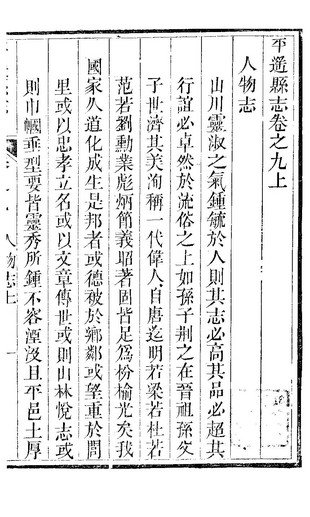 平遙縣志卷之九上
人物志
山川靈淑之氣鍾毓於人則其志必高其品必超其
行誼必卓然於流俗之上如孫子荆之在晉祖孫父
子世濟其美洵稱一代偉人自唐迄明若梁若杜若
范若劉勳業彪炳節義昭著固皆足爲枌榆光矣我
國家久道化成生是邦者或德被於鄉鄰或望重於閭
里或以忠孝立名或以文章傳世或則山林悅志或
則巾幗垂型要皆靈秀所鍾不容湮沒且平邑土厚
人物志上
一